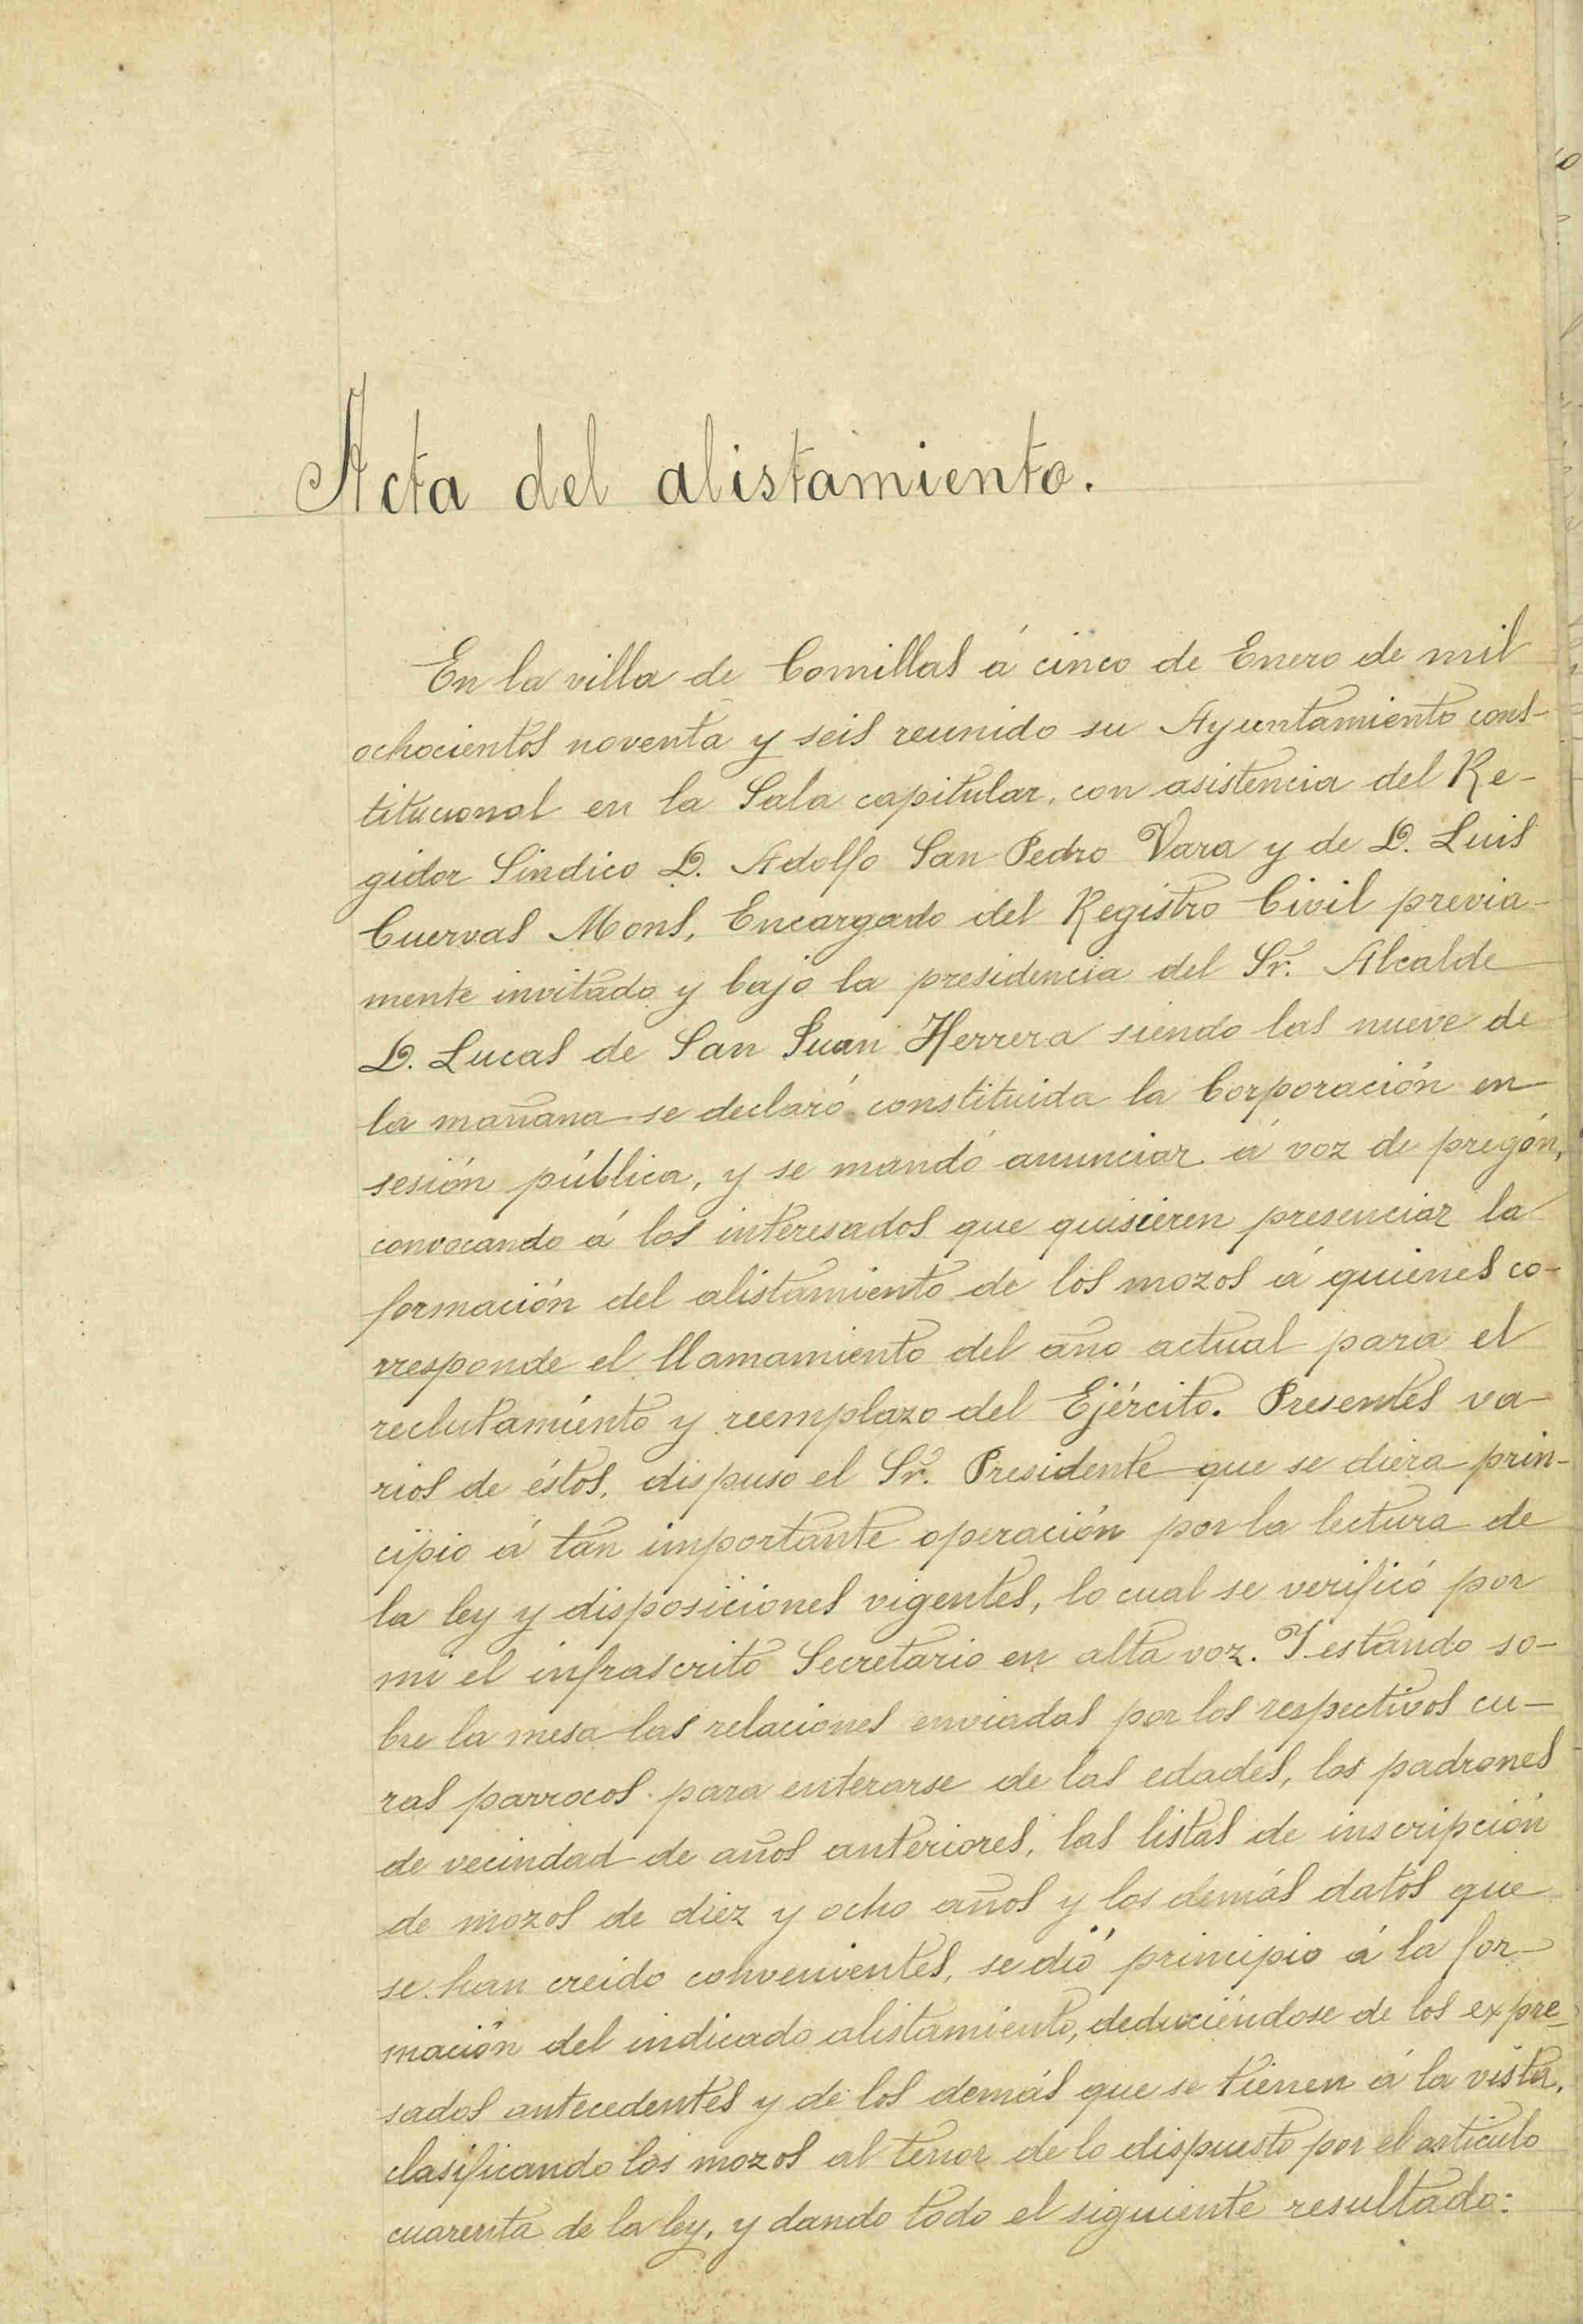 Acta del alistamiento.
En la villa de Comillas á cinco de Enero de mil
ochocientos noventa y seis reunido su Ayuntamiento cons-
titucional en la Sala capitular, con asistencia del Re-
gidor Sindico D. Adolfo San Pedro Vara y de D. Luis
Cuervas Mons, Encargado del Registro Civil previa-
mente invitado y bajo la presidencia del Sr. Alcalde
D. Lucas de San Juan Herrera siendo las nueve de
la mañana se declaró constituida la Corporación en
sesión pública, y se mandó anunciar á voz de pregón,
convocando á los interesados que quisieren presenciar la
formación del alistamiento de los mozos á quienes co-
rresponde el llamamiento del año actual para el
reclutamiento y reemplazo del Ejército. Presentes va-
rios de éstos, dispuso el Sr. Presidente que se diera prin-
cipio á tan importante operación por la lectura de
la ley y disposiciones vigentes, lo cual se verificó por
mi el infrascrito Secretario en alta voz. Y estando so-
bre la mesa las relaciones enviadas por los respectivos cu-
ras parrocos para enterarse de las edades, los padrones
de vecindad de años anteriores, las listas de inscripción
de mozos de diez y ocho años y los demás datos que
se han creido convenientes, se dió principio á la for-
mación del indicado alistamiento, deduciéndose de los expre-
sados antecedentes y de los demás que se tienen á la vista,
clasificando los mozos al tenor de lo dispuesto por el articulo
cuarenta de la ley, y dando todo el siguiente resultado: